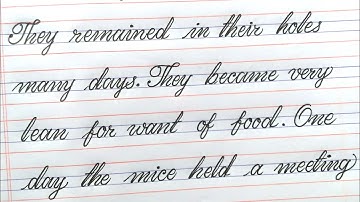 They remained in their holes
many days. They became very
lean for want of food. One
day the mice held a meeting